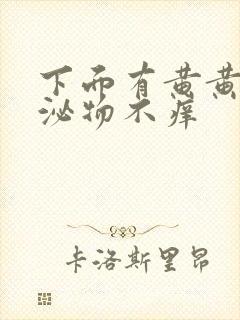 下而有黄黄
泌物不痒
卡洛斯里昂